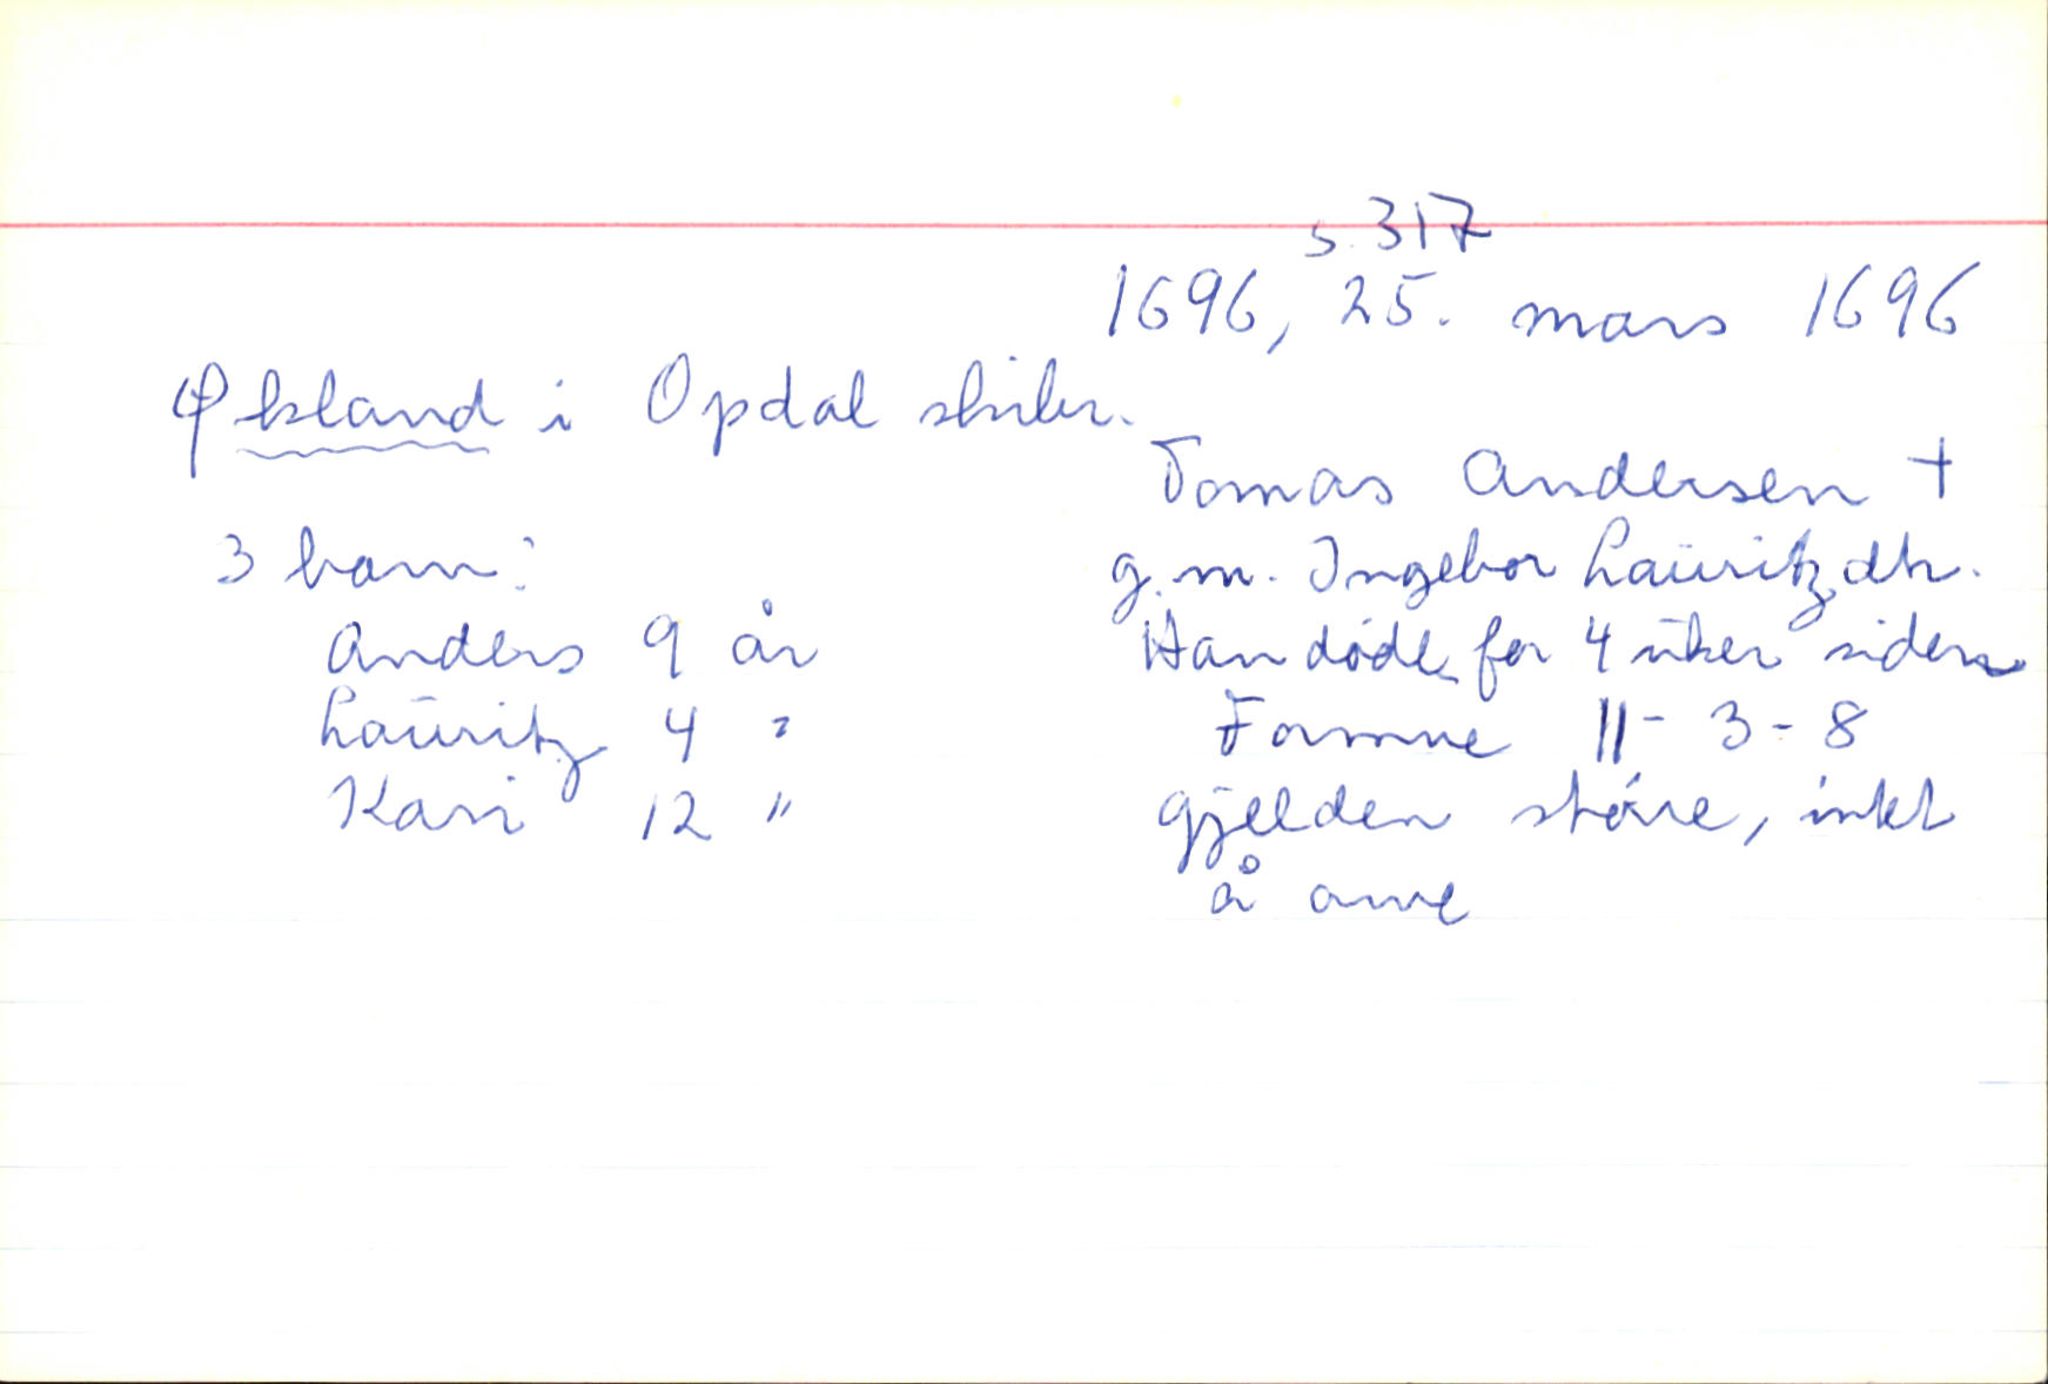 s. 317
1696, 25. mars 1696
Øksland i Opdal skibr.
Tomas Andersen †
g.m. Ingebor Lauritzdtr.
Han døde for 4 uker siden
Formue 11-3-8
Gjelden større, inkt
å arve
3 barn:
Anders 9 år
Lauritz 4 "
Kari 12 "